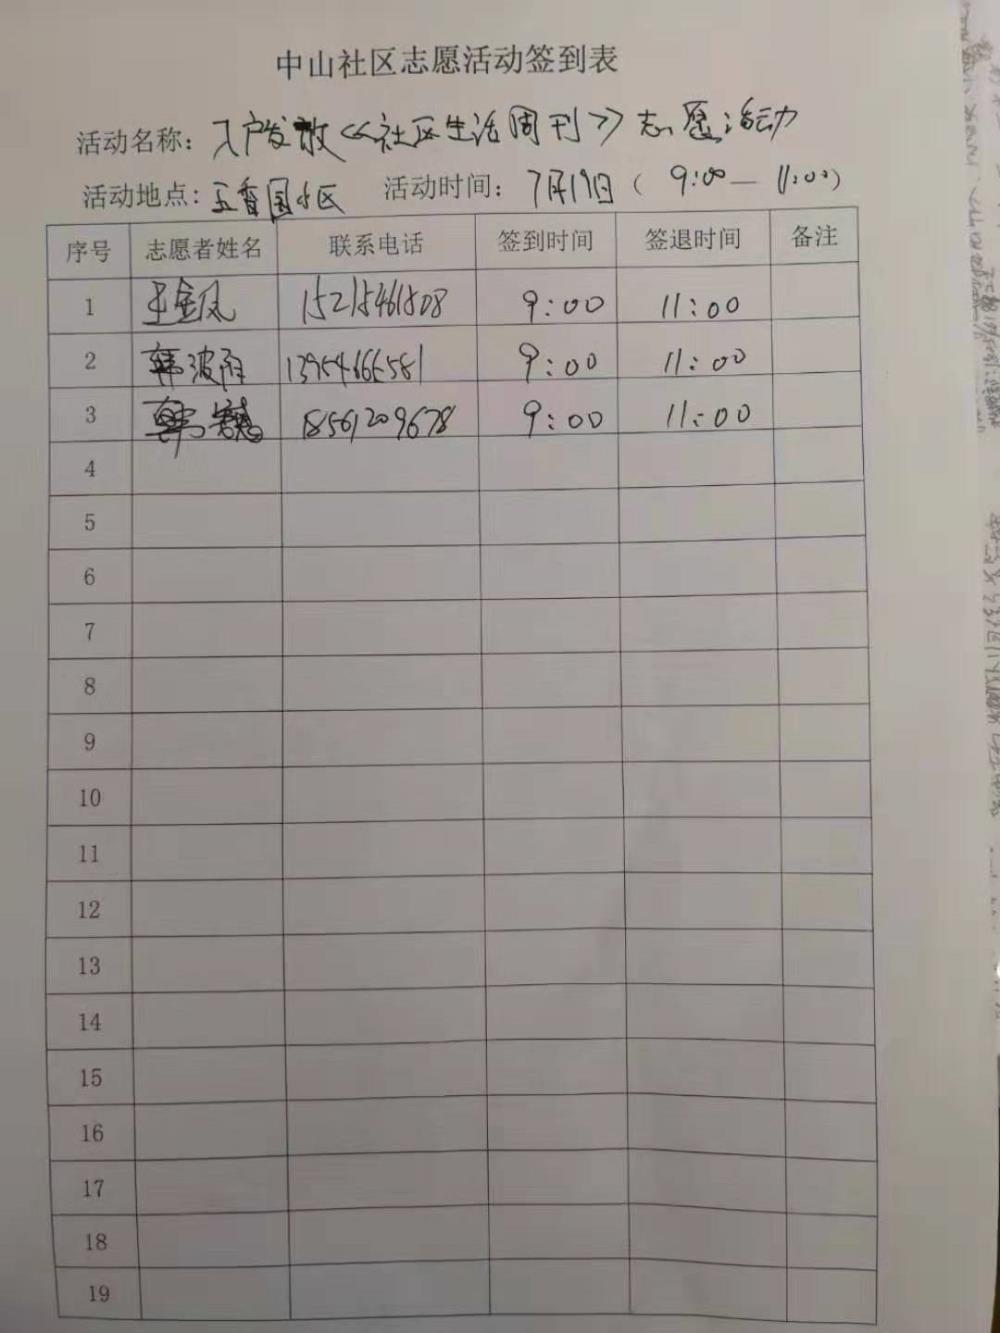 中山社区志愿活动签到表
活动名称: 入户发放《社区生活周刊》志愿活动
活动地点: 五香园小区 活动时间: 7月19日 ( 9:00 — 11:00)
序号 志愿者姓名 联系电话 签到时间 签退时间 备注
1 王金凤 15215461508 9:00 11:00
2 韩波 13954666581 9:00 11:00
3 韩 18561209678 9:00 11:00
4
5
6
7
8
9
10
11
12
13
14
15
16
17
18
19